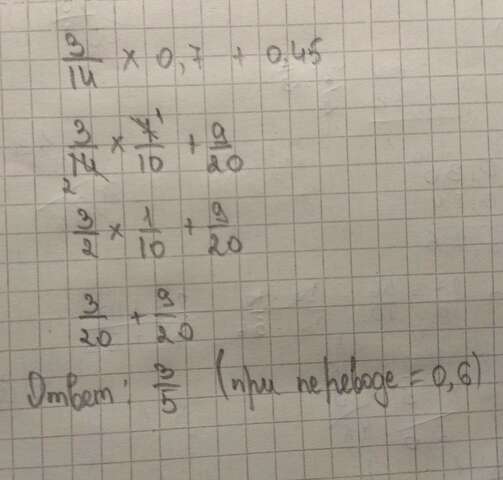 3/14 × 0,7 + 0.45
3/14 2 × 7 1/10 + 9/20
3/2 × 1/10 + 9/20
3/20 + 9/20
Ответ: 3/5 (при переводе = 0,6)